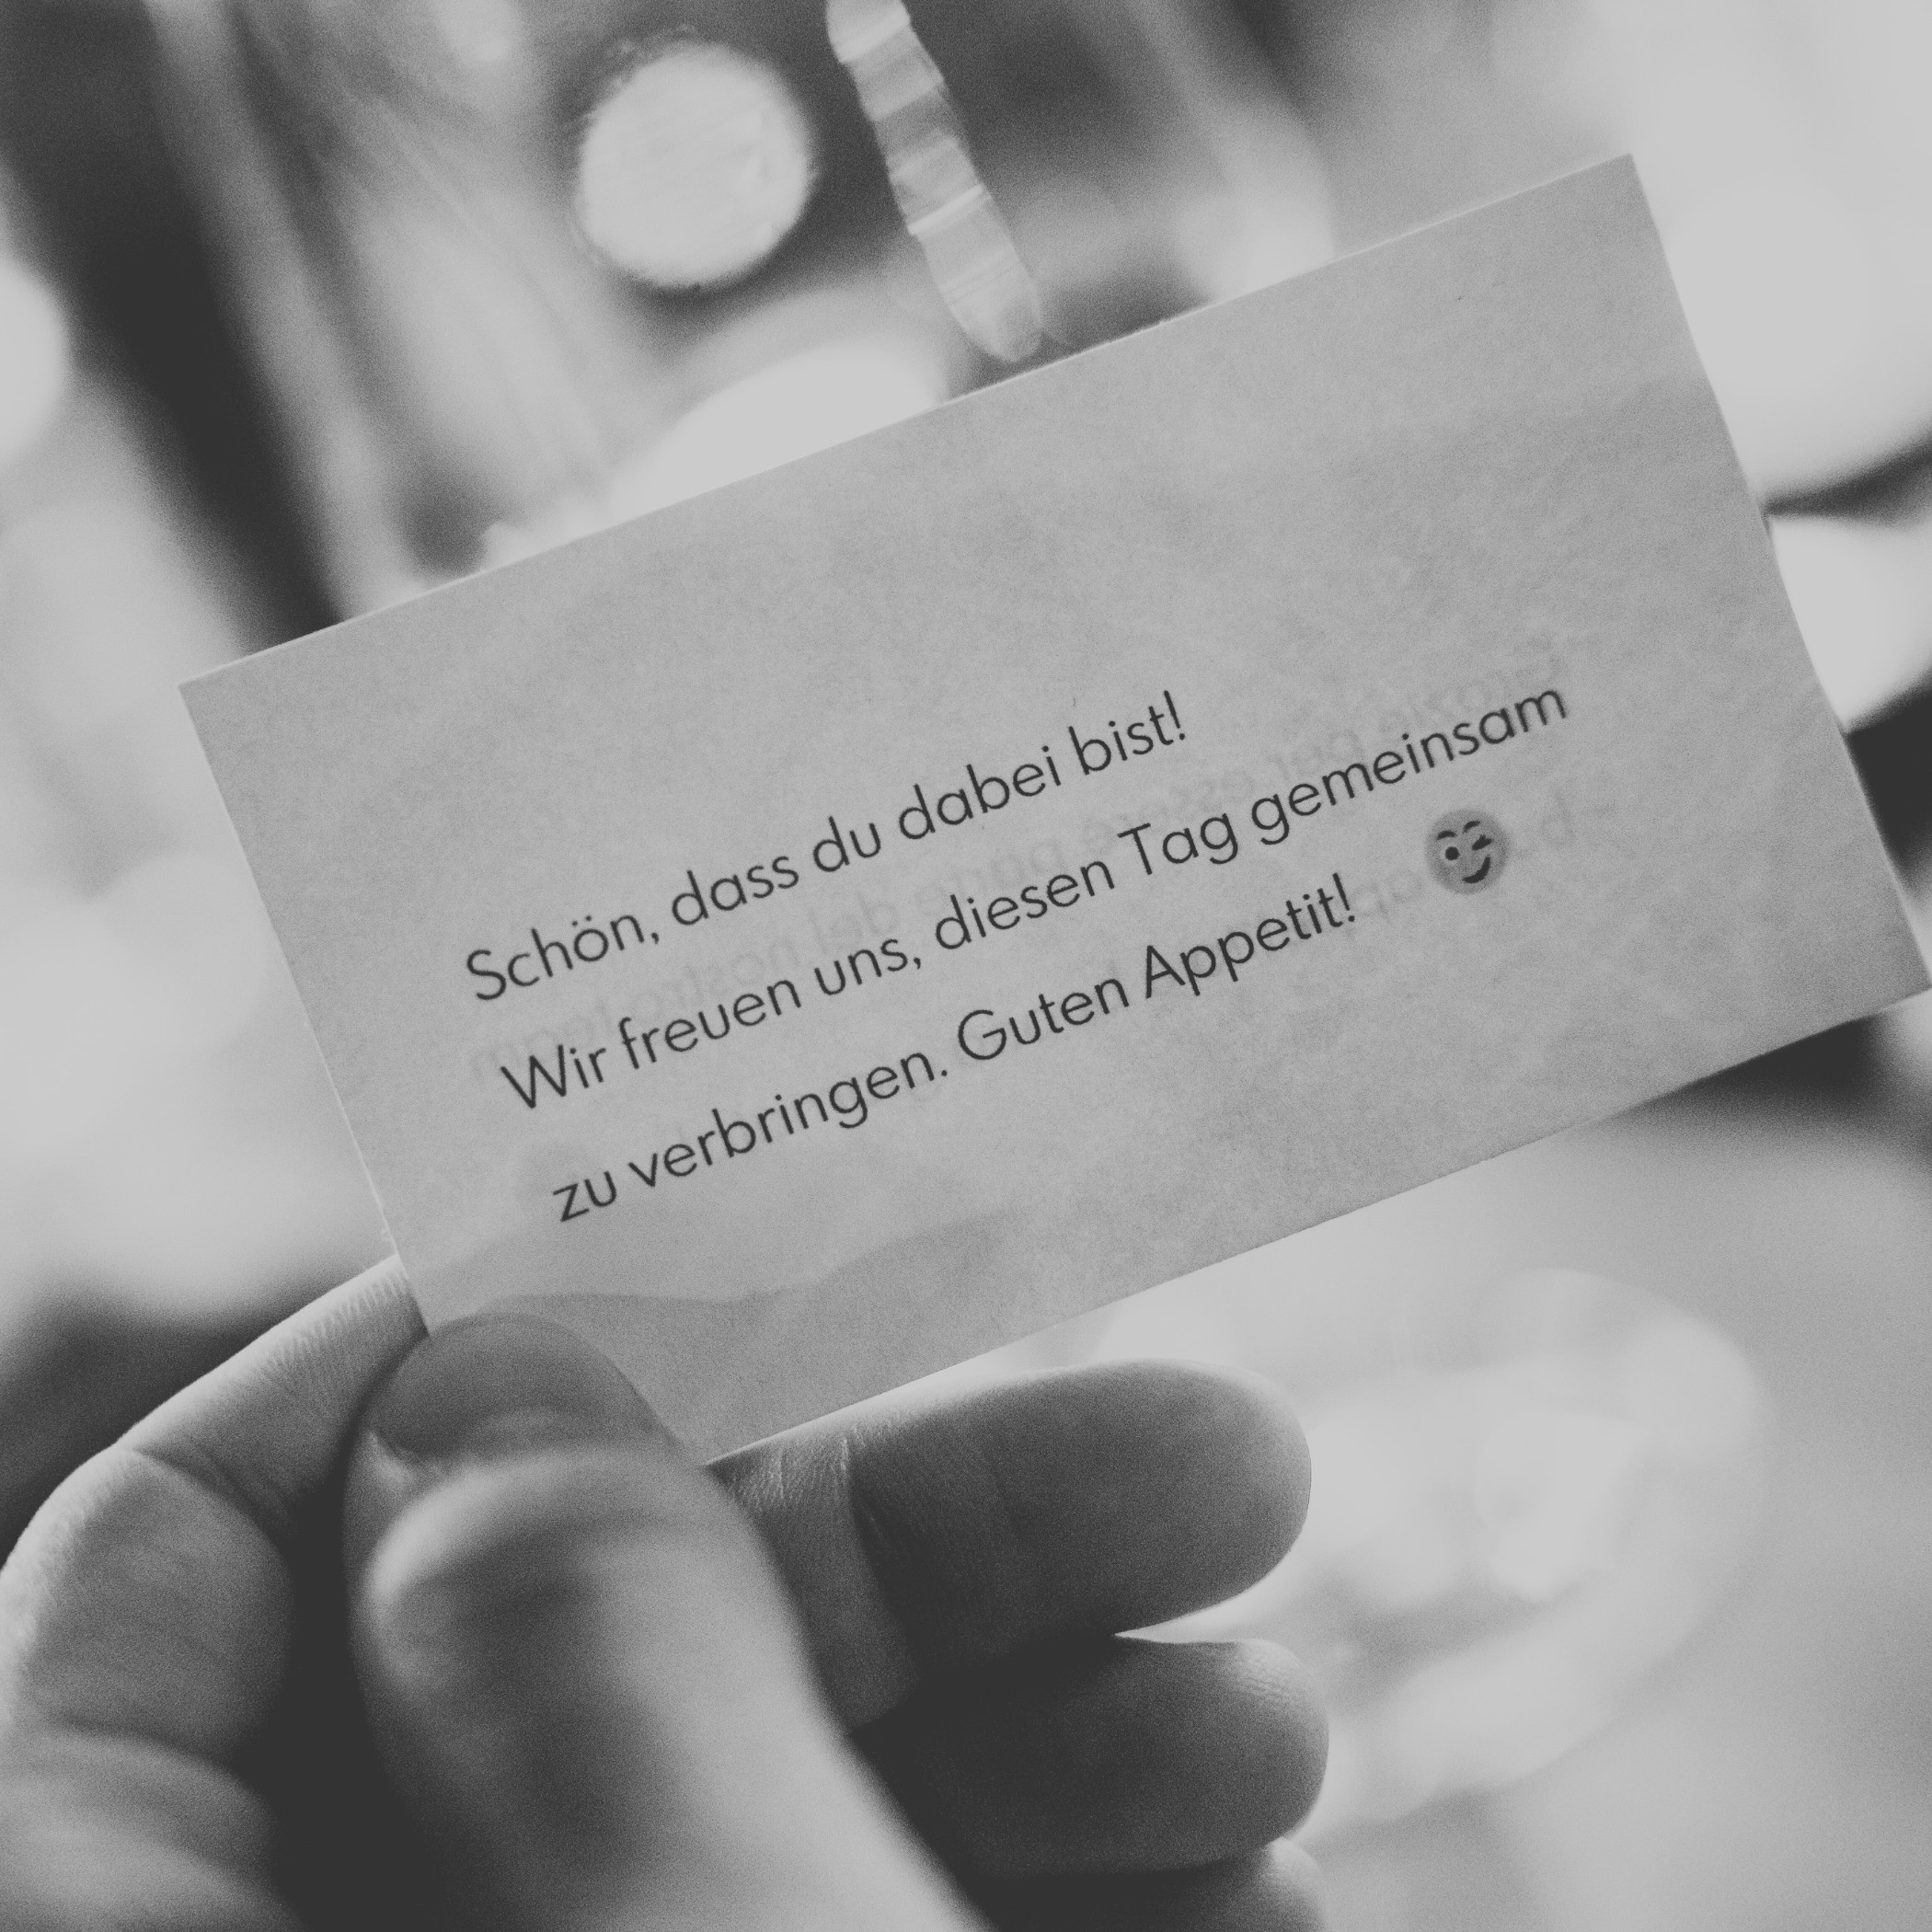 Schön, dass du dabei bist!
Wir freuen uns, diesen Tag gemeinsam
zu verbringen. Guten Appetit! 😉